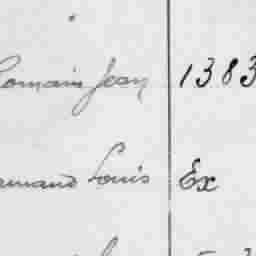 Romain Jean 1383
Armand Louis Ex